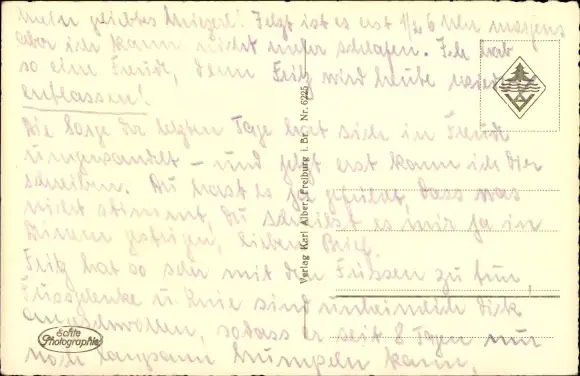 mein geliebtes Mieperl! Jetzt ist es erst 1/2 6 Uhr morgens
aber ich kann nicht mehr schlafen. Ich hab
so eine Freude, denn Fritz wird heute
entlassen!
Die Sorge der letzten Tage hat sich in Freude
umgewandelt – und jetzt erst kann ich Dir
schreiben. Du hast es ja gefühlt, dass was
nicht stimmt, Du schreibst es mir ja in
Deinem gestrigen, lieben Brief.
Fritz hat so sehr mit den Füssen zu tun,
Fussgelenke u. Knie sind unheimlich dick
angeschwollen, sodass er seit 8 Tagen nur
noch langsam humpeln kann,
Verlag Karl Alber, Freiburg i. Br. Nr. 6225
Echte
Photographie